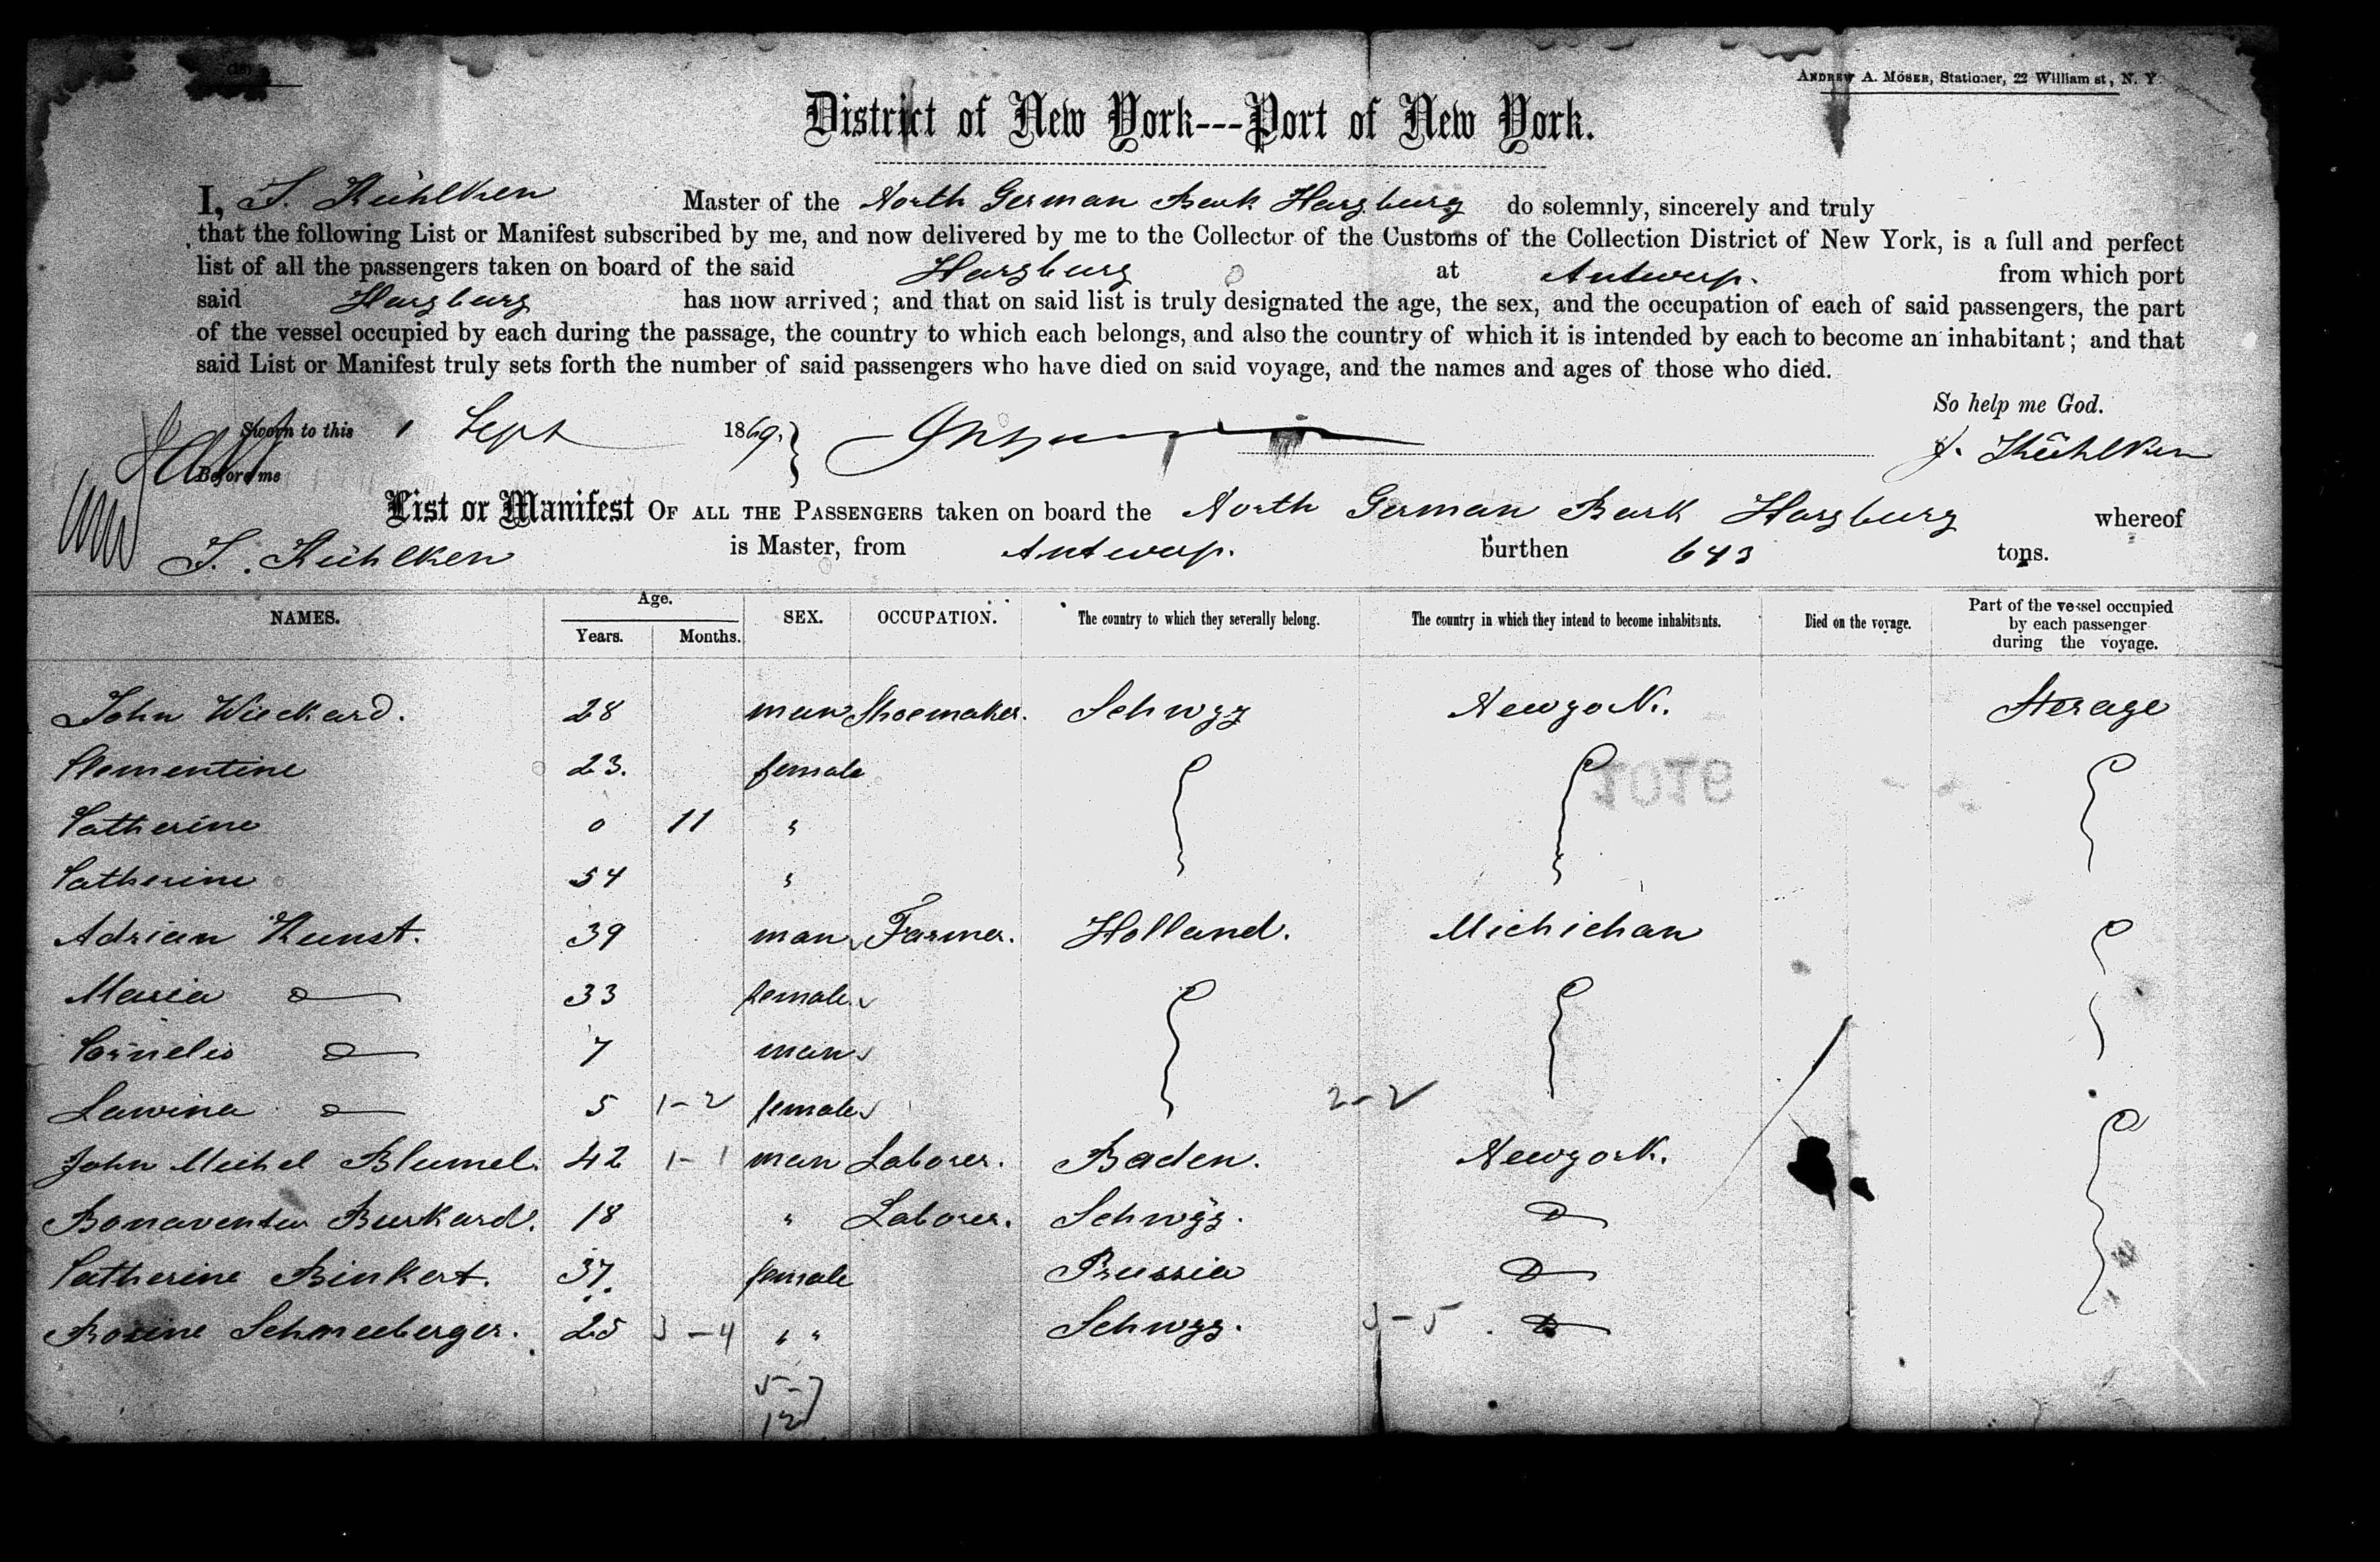 (18)
ANDREW A. MOSER, Stationer, 22 William st, N. Y.
District of New York---Port of New York.
I, J. Kühlken Master of the North German Bark Harzburg do solemnly, sincerely and truly
that the following List or Manifest subscribed by me, and now delivered by me to the Collector of the Customs of the Collection District of New York, is a full and perfect
list of all the passengers taken on board of the said Harzburg at Antwerp. from which port
said Harzburg has now arrived; and that on said list is truly designated the age, the sex, and the occupation of each of said passengers, the part
of the vessel occupied by each during the passage, the country to which each belongs, and also the country of which it is intended by each to become an inhabitant; and that
said List or Manifest truly sets forth the number of said passengers who have died on said voyage, and the names and ages of those who died.
So help me God.
Sworn to this 1 Sept 1869. J. Kühlken
Before me
List or Manifest OF ALL THE PASSENGERS taken on board the North German Bark Harzburg whereof
J. Kühlken is Master, from Antwerp. burthen 643 tons.
NAMES. Age. Years. Months. SEX. OCCUPATION. The country to which they severally belong. The country in which they intend to become inhabitants. Died on the voyage. Part of the vessel occupied by each passenger during the voyage.
John Wieckard. 28 man Shoemaker. Schwyz Newyork. Sterage
Clementine 23. female
Catherine 0 11 "
Catherine 54 "
Adrian Kunst. 39 man Farmer. Holland. Michichan
Maria do 33 female
Cornelis do 7 man
Lawina do 5 1-2 female 2-2
John Michel Blumel. 42 1-1 man Laborer. Baden. Newyork.
Bonaventur Burkard. 18 " Laborer. Schwyz. do
Catherine Binkert. 37. female Prussia do
Rosine Schneeberger. 25 3-4 " " Schwyz. 3-5 do
5-7
12